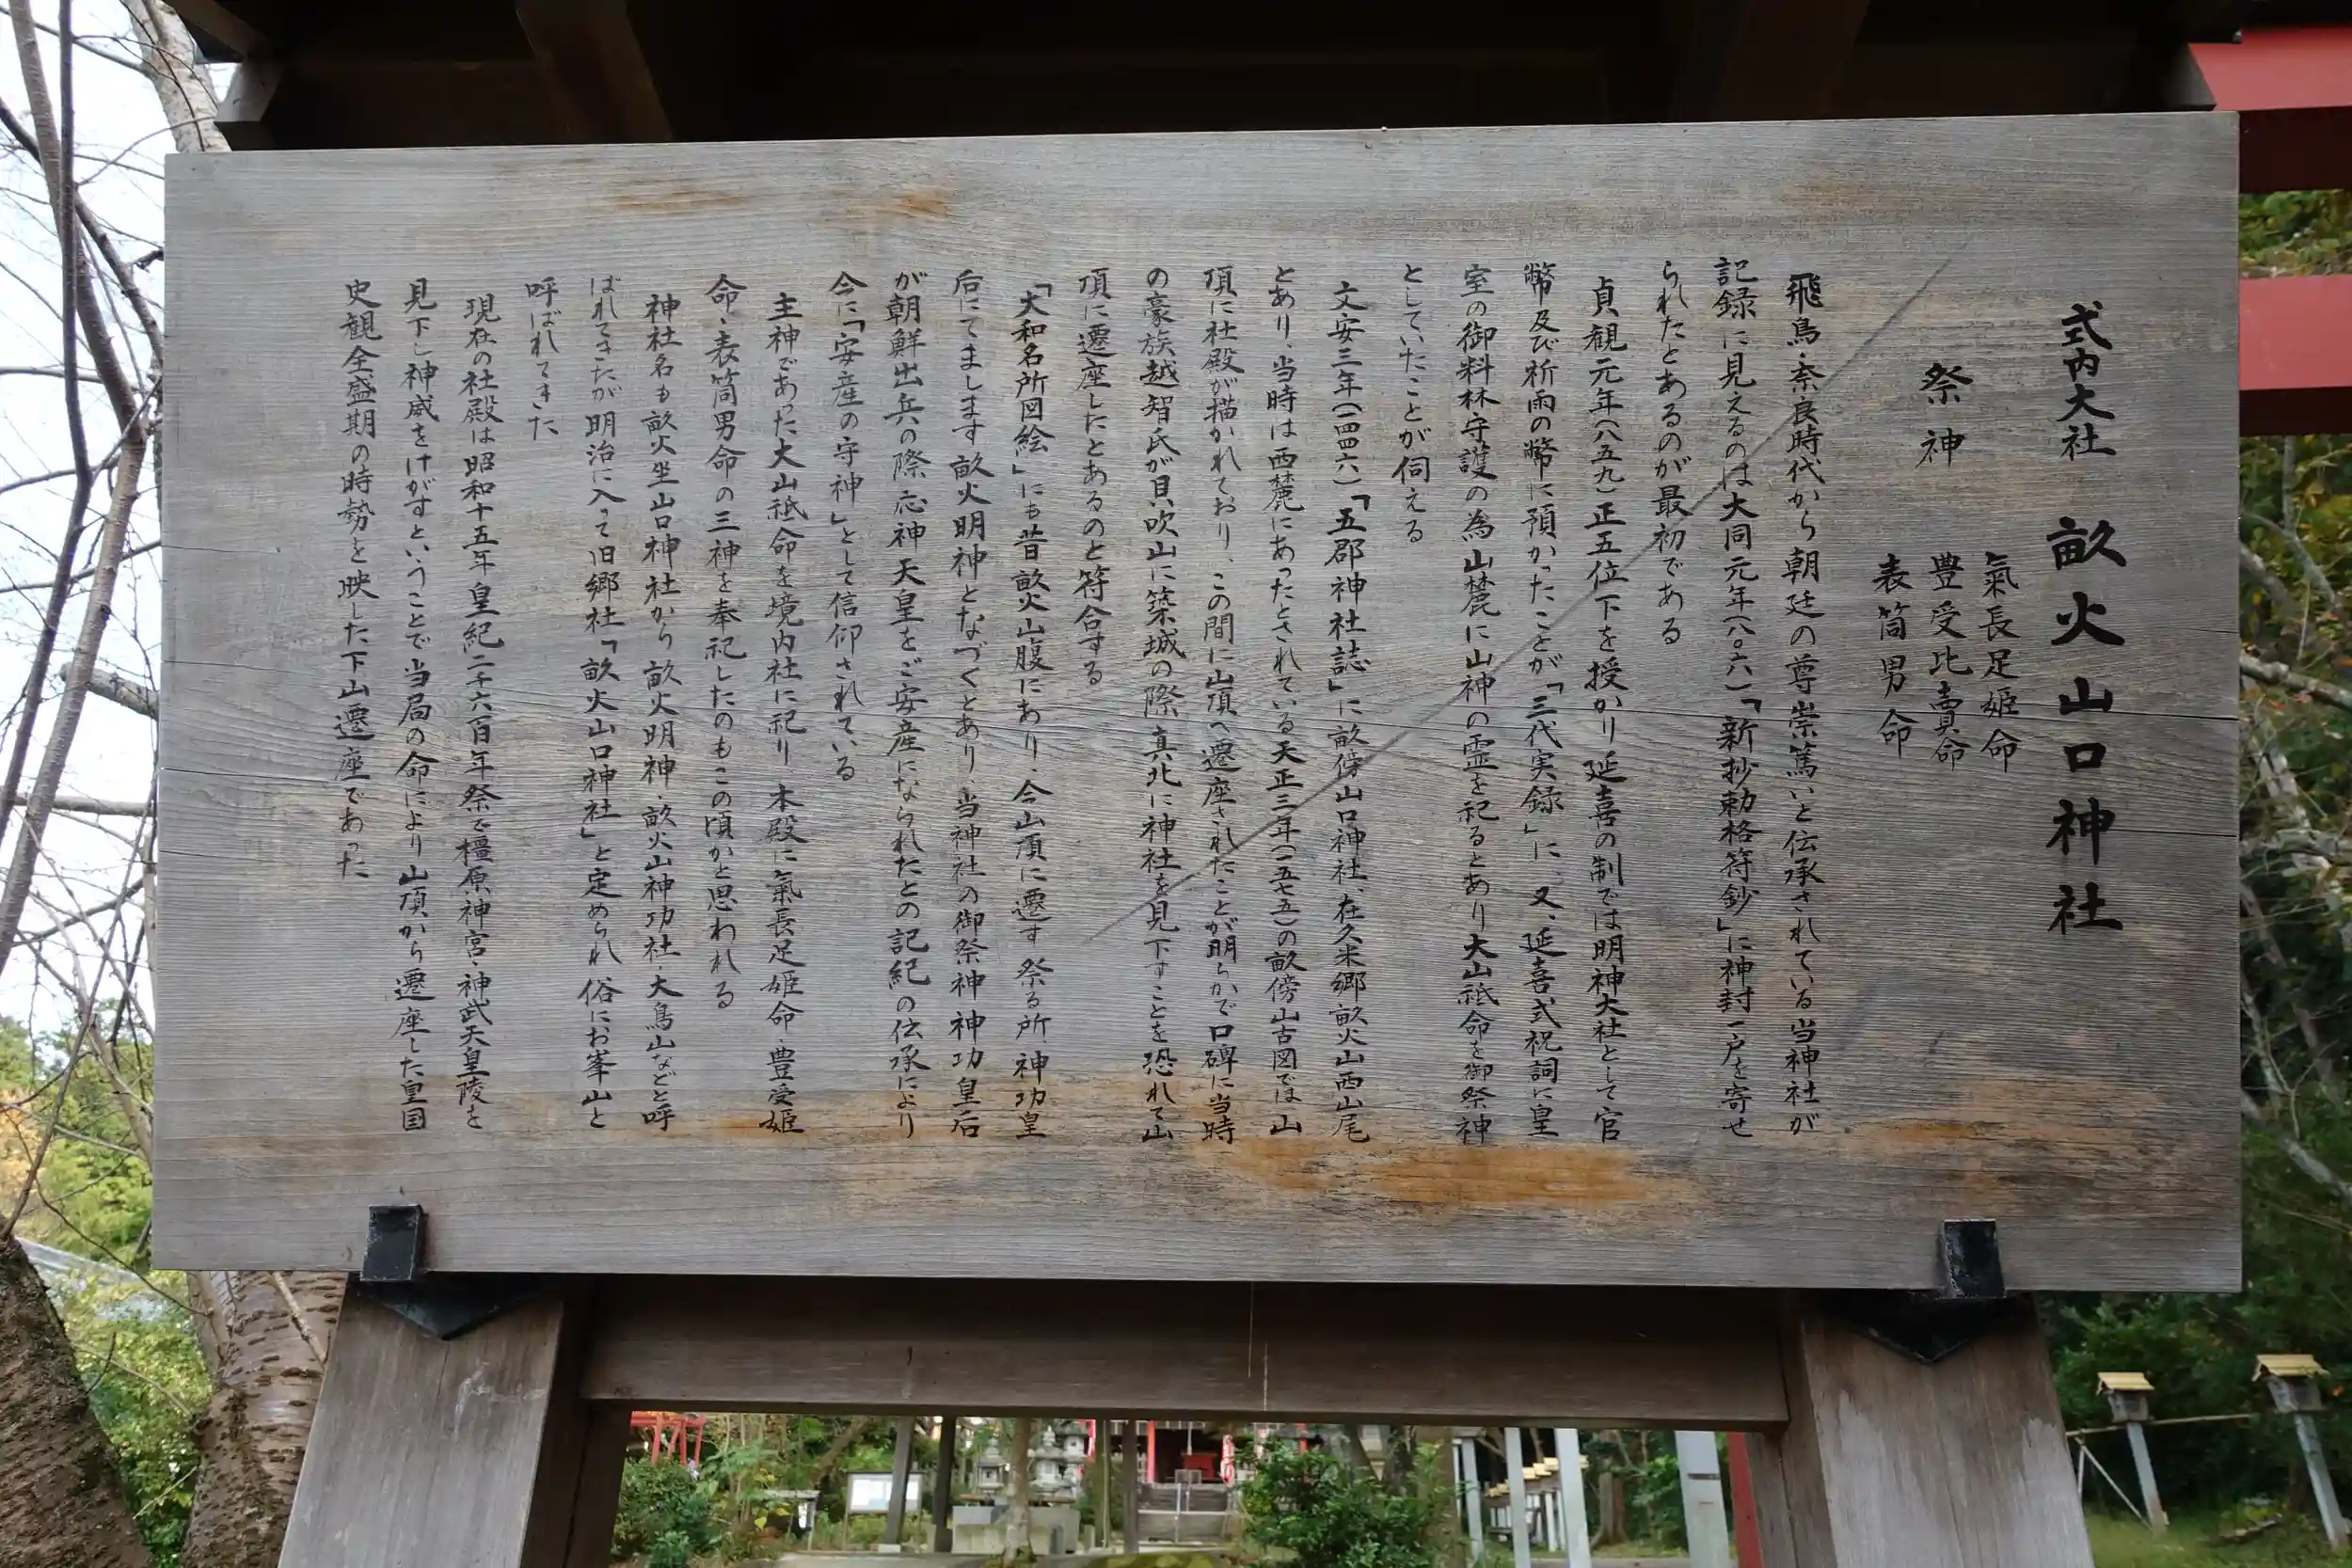 式内大社 畝火山口神社
祭神
氣長足姫命
豊受比賣命
表筒男命
飛鳥・奈良時代から朝廷の尊崇篤いと伝承されている当神社が
記録に見えるのは大同元年(八〇六)「新抄勅格符鈔」に神封一戸を寄せ
られたとあるのが最初である
貞観元年(八五九)正五位下を授かり延喜の制では明神大社として官
幣及び祈雨の幣に預かったことが「三代実録」に、又、延喜式祝詞に皇
室の御料林守護の為山麓に山神の霊を祀るとあり大山祇命を御祭神
としていたことが伺える
文安三年(一四四六)「五郡神社誌」に畝傍山口神社、在久米郷畝火山西山尾
とあり、当時は西麓にあったとされている天正三年(一五七五)の畝傍山古図では、山
頂に社殿が描かれており、この間に山頂へ遷座されたことが明らかで口碑に当時
の豪族越智氏が貝吹山に築城の際、真北に神社を見下すことを恐れて山
頂に遷座したとあるのと符合する
「大和名所図絵」にも昔畝火山腹にあり、今山頂に遷す祭る所神功皇
后にてまします畝火明神となづくとあり、当神社の御祭神神功皇后
が朝鮮出兵の際応神天皇をご安産になられたとの記紀の伝承により
今に「安産の守神」として信仰されている
主神であった大山祇命を境内社に祀り、本殿に氣長足姫命・豊受姫
命・表筒男命の三神を奉祀したのもこの頃かと思われる
神社名も畝火坐山口神社から畝火明神・畝火山神功社・大鳥山などと呼
ばれてきたが明治に入って旧郷社「畝火山口神社」と定められ俗にお峯山と
呼ばれてきた
現在の社殿は昭和十五年皇紀二千六百年祭で橿原神宮・神武天皇陵を
見下し神威をけがすということで当局の命により山頂から遷座した皇国
史観全盛期の時勢を映した下山遷座であった